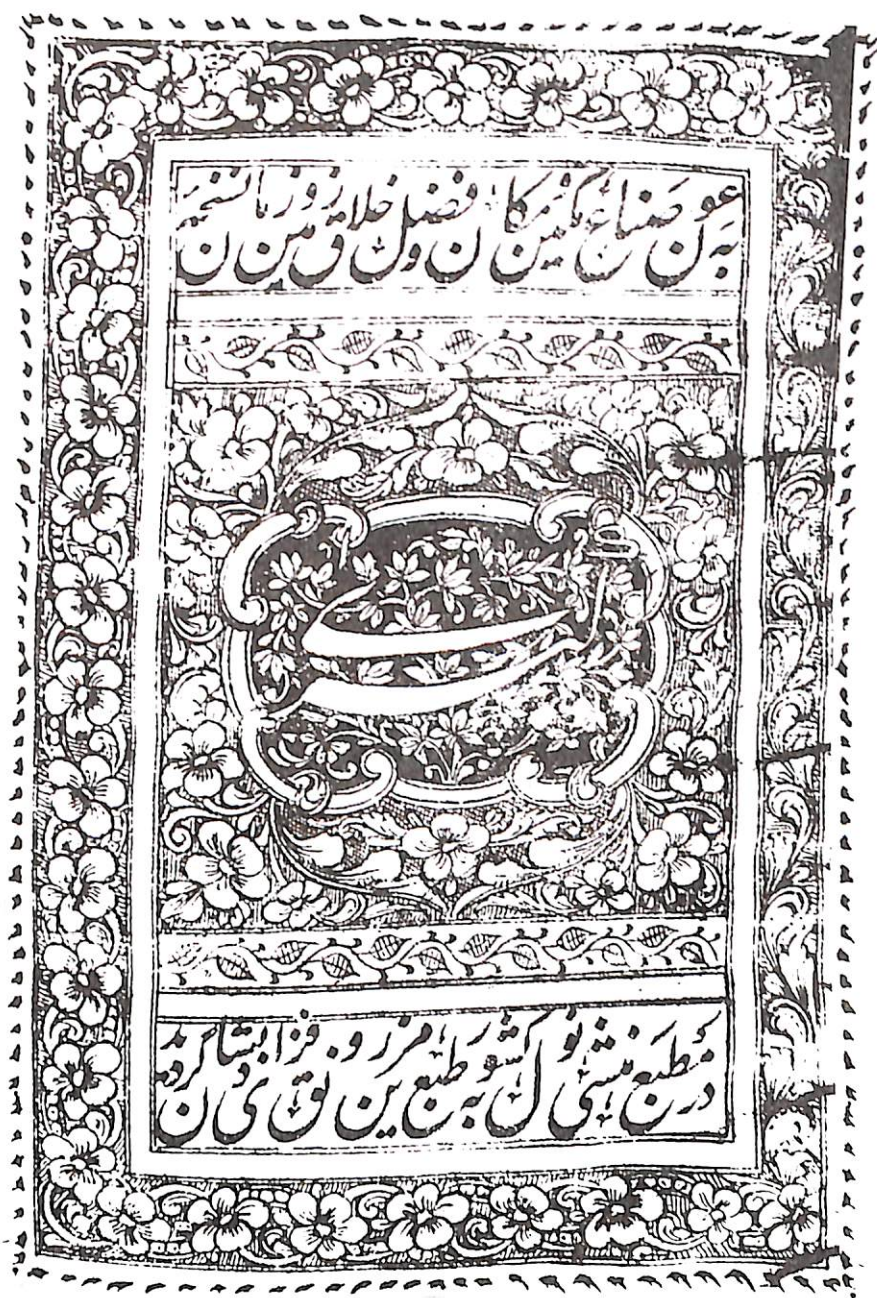 به عون صناع مکین مکان و فضل خلاق زمین زمان نسخه
در مطبع منشی نول کشور به طبع مزین رونق فزای دبستان گردید